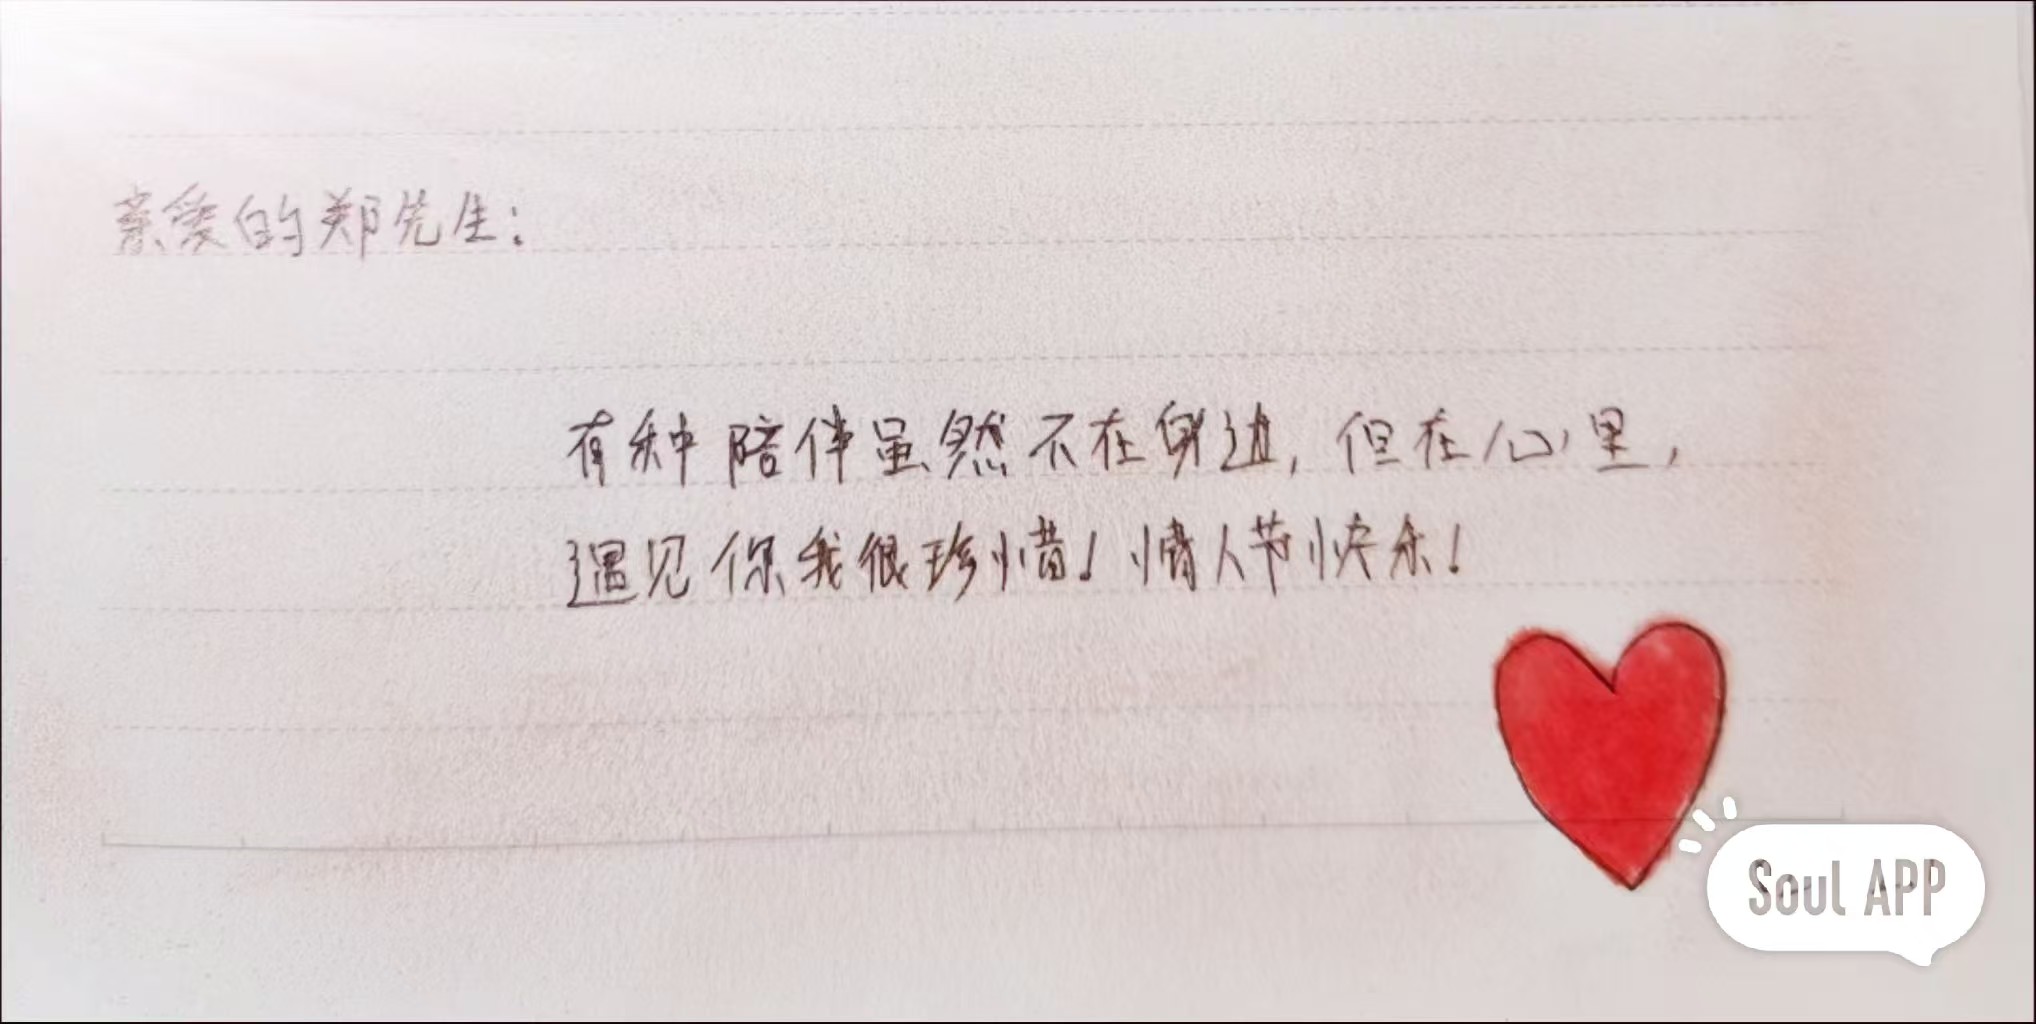 亲爱的郑先生：
有种陪伴虽然不在身边，但在心里，
遇见你我很珍惜！情人节快乐！
Soul APP